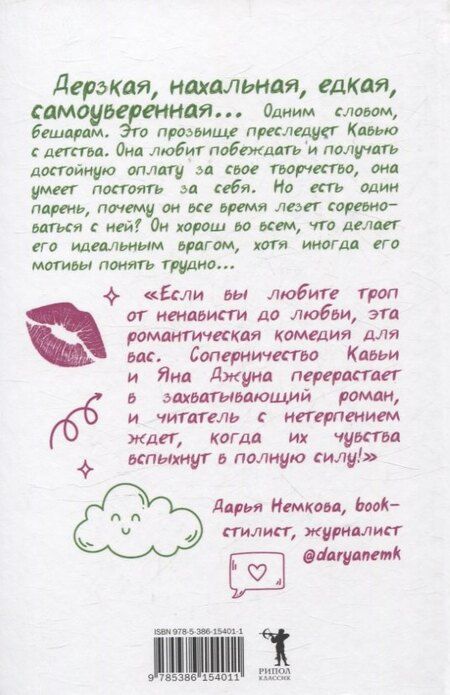 Дерзкая, нахальная, едкая,
самоуверенная... Одним словом,
бешарам. Это прозвище преследует Кавью
с детства. Она любит побеждать и получать
достойную оплату за свое творчество, она
умеет постоять за себя. Но есть один
парень, почему он все время лезет соревно-
ваться с ней? Он хорош во всем, что делает
его идеальным врагом, хотя иногда его
мотивы понять трудно...
«Если вы любите троп
от ненависти до любви, эта
романтическая комедия для
вас. Соперничество Кавьи
и Яна Джуна перерастает
в захватывающий роман,
и читатель с нетерпением
ждет, когда их чувства
вспыхнут в полную силу!»
Дарья Немкова, book-
стилист, журналист
@daryanemk
ISBN 978-5-386-15401-1
9 785386 154011
РИПОЛ
КЛАССИК